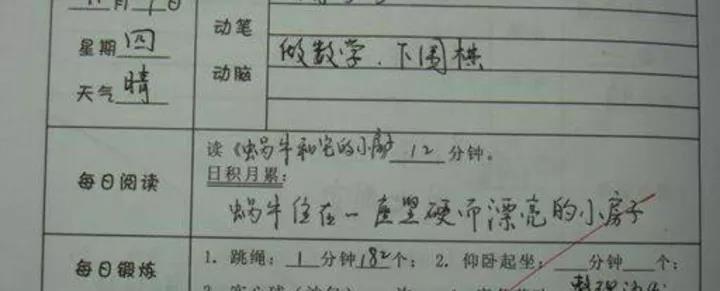 月 日
星期 四
天气 晴
动笔
动脑
做数学、下围棋
每日阅读
读《蜗牛和它的小房》 12 分钟。
日积月累:
蜗牛住在一座坚硬而漂亮的小房子
每日锻炼
1. 跳绳: 1 分钟 182 个; 2. 仰卧起坐: 分钟 个;